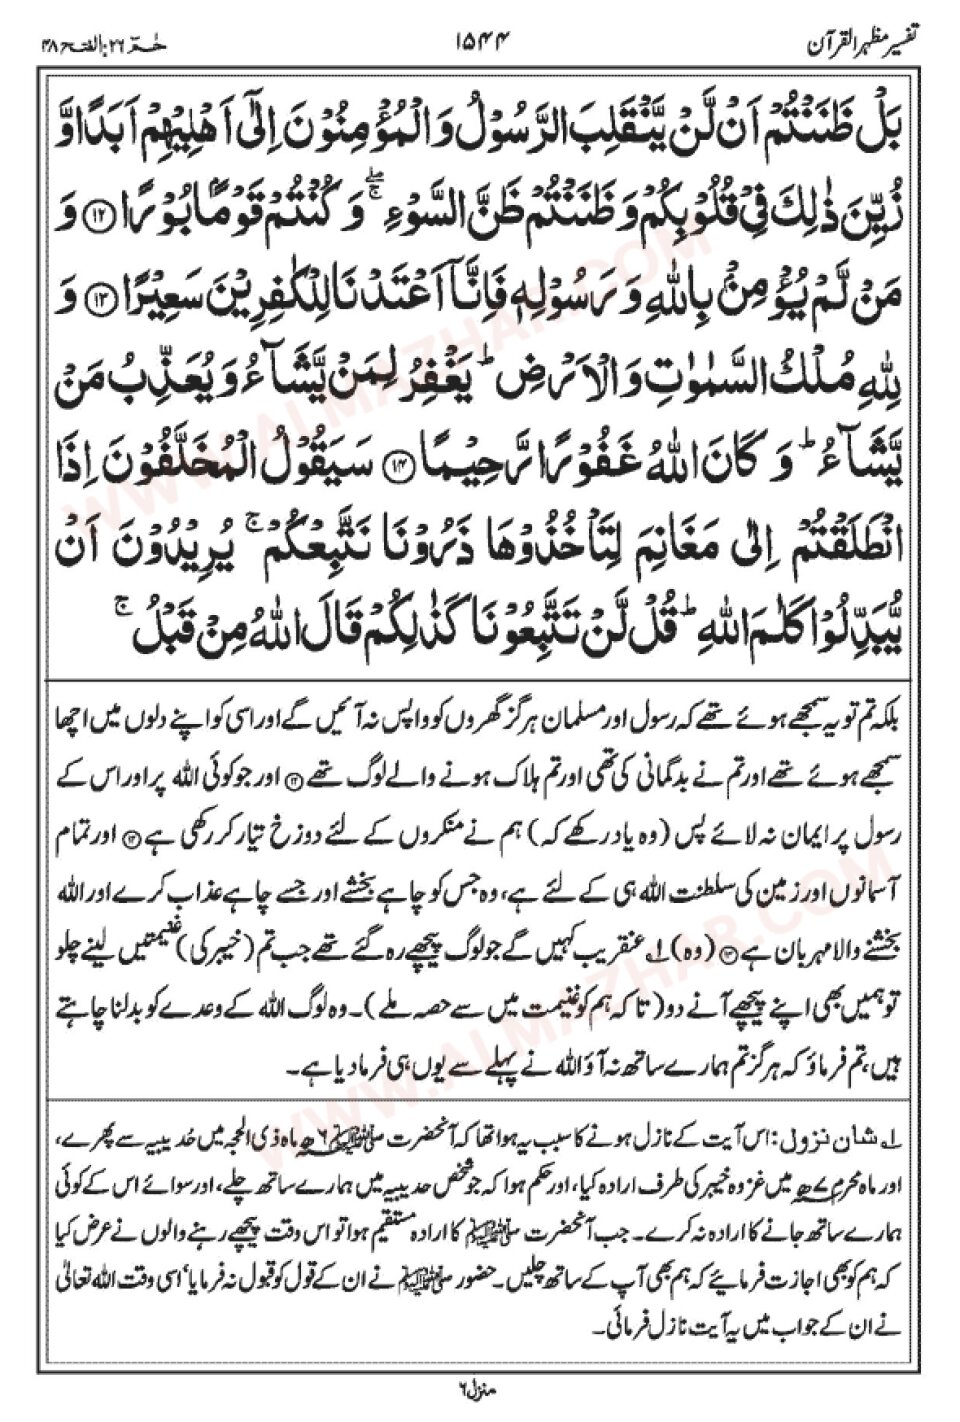 تفسیر مظہر القرآن
۱۵۴۴
حٰمٓ ۲۶: الفتح ۴۸
بَلْ ظَنَنْتُمْ اَنْ لَّنْ یَّنْقَلِبَ الرَّسُوْلُ وَ الْمُؤْمِنُوْنَ اِلٰۤی اَهْلِیْهِمْ اَبَدًا وَّ
زُیِّنَ ذٰلِكَ فِیْ قُلُوْبِكُمْ وَ ظَنَنْتُمْ ظَنَّ السَّوْءِ ۖۚ وَ كُنْتُمْ قَوْمًۢا بُوْرًا ﴿۱۲﴾ وَ
مَنْ لَّمْ یُؤْمِنْۢ بِاللّٰهِ وَ رَسُوْلِهٖ فَاِنَّاۤ اَعْتَدْنَا لِلْكٰفِرِیْنَ سَعِیْرًا ﴿۱۳﴾ وَ
لِلّٰهِ مُلْكُ السَّمٰوٰتِ وَ الْاَرْضِ ؕ یَغْفِرُ لِمَنْ یَّشَآءُ وَ یُعَذِّبُ مَنْ
یَّشَآءُ ؕ وَ كَانَ اللّٰهُ غَفُوْرًا رَّحِیْمًا ﴿۱۴﴾ سَیَقُوْلُ الْمُخَلَّفُوْنَ اِذَا
انْطَلَقْتُمْ اِلٰی مَغَانِمَ لِتَاْخُذُوْهَا ذَرُوْنَا نَتَّبِعْكُمْ ۚ یُرِیْدُوْنَ اَنْ
یُّبَدِّلُوْا كَلٰمَ اللّٰهِ ؕ قُلْ لَّنْ تَتَّبِعُوْنَا كَذٰلِكُمْ قَالَ اللّٰهُ مِنْ قَبْلُ ۚ
بلکہ تم تو یہ سمجھے ہوئے تھے کہ رسول اور مسلمان ہرگز گھروں کو واپس نہ آئیں گے اور اسی کو اپنے دلوں میں اچھا
سمجھے ہوئے تھے اور تم نے بدگمانی کی تھی اور تم ہلاک ہونے والے لوگ تھے ﴿۱۲﴾ اور جو کوئی اللہ پر اور اس کے
رسول پر ایمان نہ لائے پس (وہ یاد رکھے کہ) ہم نے منکروں کے لئے دوزخ تیار کر رکھی ہے ﴿۱۳﴾ اور تمام
آسمانوں اور زمین کی سلطنت اللہ ہی کے لئے ہے، وہ جس کو چاہے بخشے اور جسے چاہے عذاب کرے اور اللہ
بخشنے والا مہربان ہے ﴿۱۴﴾ (وہ) ۱ عنقریب کہیں گے جو لوگ پیچھے رہ گئے تھے جب تم (خیبر کی) غنیمتیں لینے چلو
تو ہمیں بھی اپنے پیچھے آنے دو (تا کہ ہم کو غنیمت میں سے حصہ ملے)۔ وہ لوگ اللہ کے وعدے کو بدلنا چاہتے
ہیں، تم فرماؤ کہ ہرگز تم ہمارے ساتھ نہ آؤ اللہ نے پہلے سے یوں ہی فرما دیا ہے۔
۱ شان نزول: اس آیت کے نازل ہونے کا سبب یہ ہوا تھا کہ آنحضرت ﷺ ۶ھ ماہ ذی الحجہ میں حدیبیہ سے پھرے،
اور ماہ محرم ۷ھ میں غزوہ خیبر کی طرف ارادہ کیا، اور حکم ہوا کہ جو شخص حدیبیہ میں ہمارے ساتھ چلے، اور سوائے اس کے کوئی
ہمارے ساتھ جانے کا ارادہ نہ کرے۔ جب آنحضرت ﷺ کا ارادہ مستقیم ہوا تو اس وقت پیچھے رہنے والوں نے عرض کیا
کہ ہم کو بھی اجازت فرمائیے کہ ہم بھی آپ کے ساتھ چلیں۔ حضور ﷺ نے ان کے قول کو قبول نہ فرمایا، اسی وقت اللہ تعالیٰ
نے ان کے جواب میں یہ آیت نازل فرمائی۔
منزل ۶
WWW.ALMAZHAR.COM
WWW.ALMAZHAR.COM